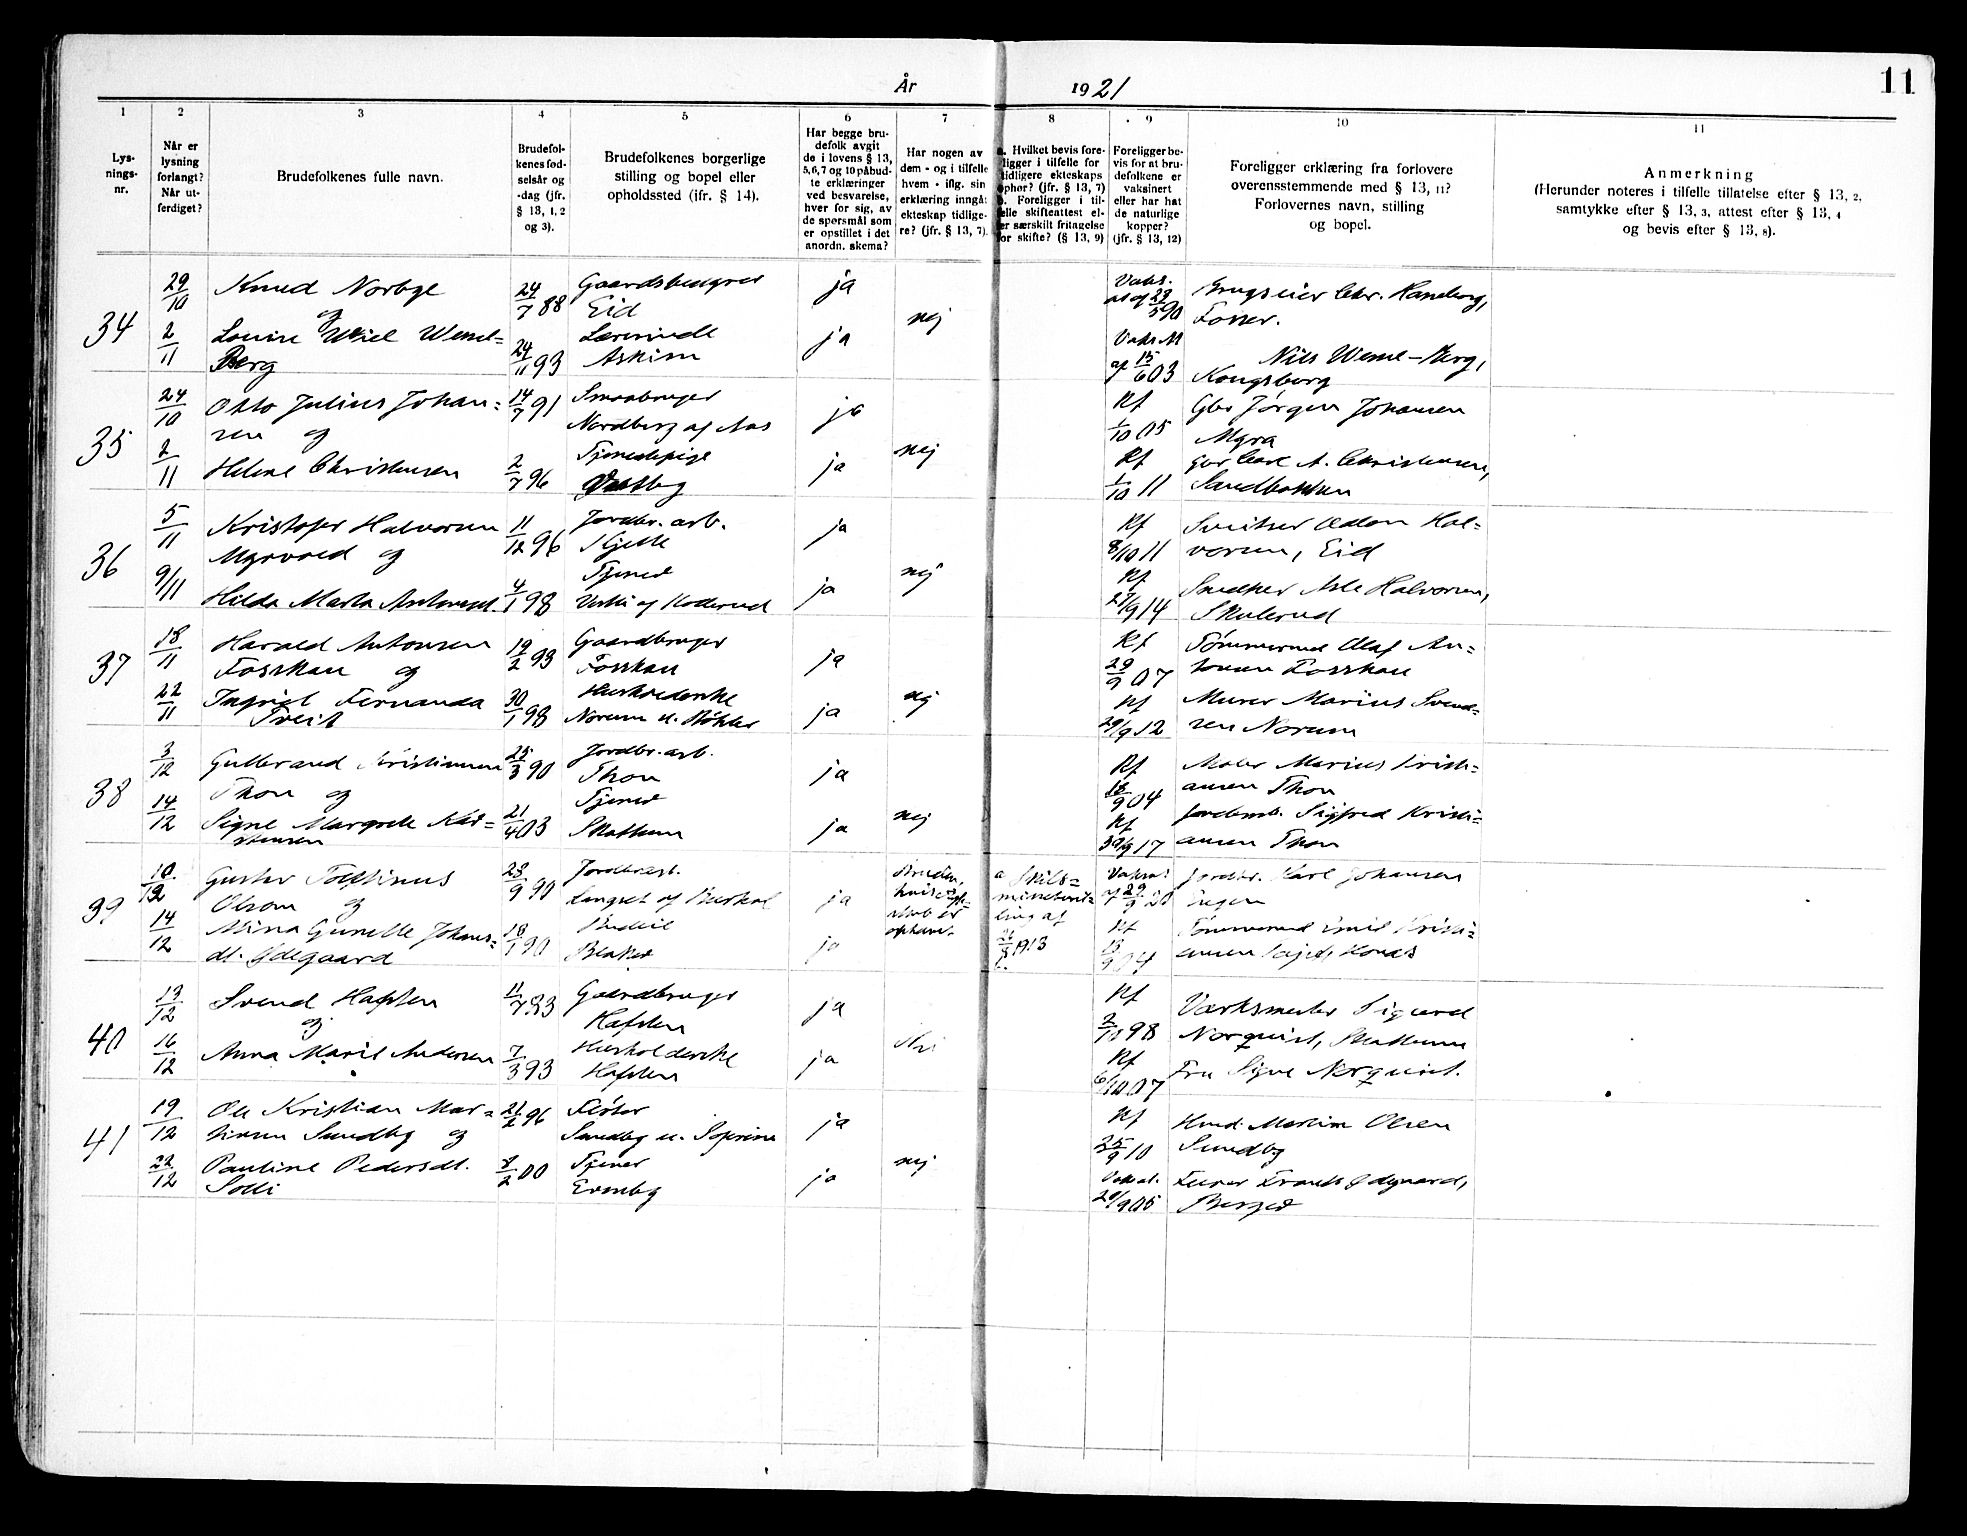 År 1921
11
1
2
3
4
5
6
7
8
9
10
11
Lys-
nings-
nr.
Når er
lysning
forlangt?
Når ut-
ferdiget?
Brudefolkenes fulle navn.
Brudefol-
kenes fød-
selsår og
-dag (jfr.
§ 13, 1, 2
og 3).
Brudefolkenes borgerlige
stilling og bopel eller
opholdssted (ifr. § 14).
Har begge bru-
defolk avgit
de i lovens § 13,
5, 6, 7 og 10 påbud-
te erklæringer
ved besvarelse,
hver for sig, av
de spørsmål som
er opstillet i det
anordn. skema?
Har nogen av
dem - og i tilfelle
hvem - iflg. sin
erklæring inngåt
ekteskap tidlige-
re? (jfr. § 13, 7).
a. Hvilket bevis fore-
ligger i tilfelle for
tidligere ekteskaps
ophør? (jfr. § 13, 7)
b. Foreligger i til-
felle skifteattest el-
ler særskilt fritagelse
for skifte? (§ 13, 9)
Foreligger be-
vis for at bru-
defolkene er
vaksinert
eller har hat
de naturlige
kopper?
(jfr. § 13, 12)
Foreligger erklæring fra forlovere
overensstemmende med § 13, 11?
Forlovernes navn, stilling
og bopel.
Anmerkning
(Herunder noteres i tilfelle tillatelse efter § 13, 2,
samtykke efter § 13, 3, attest efter § 13, 4
og bevis efter § 13, 8).
34
29/10
2/11
Knud Norbye
og
Louise Wiel Wessel-
Berg
24/7 88
24/11 93
Eid
Lærerinde
Askim
ja
ja
nej
Vaks.
Vaks. at
af 15/6 03
Brugseier Chr. Haneborg,
Fosser.
Nils Wessel-Berg,
Kongsberg
35
24/10
2/11
Otto Julius Johan-
sen og
Helene Christensen
14/7 91
2/7 96
Smaabruger
Nordberg af Aas
Tjenestepige
Vestby
ja
ja
nej
Rf
1/10 05
Rf
1/10 11
Gbr Jørgen Johansen
Myra
Gbr Carl A. Christensen,
Sandbakken
36
5/11
9/11
Kristofer Halvorsen
Myrvold og
Hilda Marta Antonsd.
11/12 96
4/1 98
Jordbr. arb.
Tjener
ja
ja
nej
Rf
8/10 11
Rf
27/9 14
Sveitser Odon Hal-
vorsen, Eid
Snedker Asle Halvorsen,
Skulerud
37
18/11
22/11
Harald Antonsen
Fosskau og
Ingrid Fernanda
Tveit
19/2 93
30/1 98
Gaardbruger
Fosskau
Husholderske
ja
ja
nej
Rf
29/9 07
Rf
29/9 12
Tømmermd Olaf An-
tonsen Fosskau
Murer Marius Svend-
sen Norum
38
3/12
14/12
Gulbrand Kristiansen
Thon og
Signe Margrete Kar-
stensen
25/3 90
21/4 03
Jordbr. arb.
Thon
Tjener
Skattum
ja
ja
nej
Rf
18/9 04
Rf
30/9 17
Maler Marius Kristi-
ansen Thon
Jordarb. Sigfred Kristi-
ansen Thon
39
10/12
14/12
Gustav
Olsen og
Mina Gunelle Johans-
dt. Ødegaard
23/9 90
18/1 90
Jordbrarb.
Budeie
Blaker
ja
ja
Bruden,
hvis ægte-
skab er
ophævet
a Skils-
misse
1913
Rf
Jordbr. Karl Johansen
Tømmermd Emil Kristi-
ansen
40
13/12
16/12
Svend Hafsten
og
Anna Marie Andersen
7/3 93
Gaardbruger
Hafsten
Husholderske
Hafsten
ja
ja
Nei
Rf
2/10 98
Rf
6/10 07
Værksmester Sigurd
Norquist, Skattum
Fru Signe Norquist.
41
19/12
22/12
Ole Kristian Mar-
tinsen Sundby og
Pauline Pedersdt.
Solli
21/2 96
8/2 00
Fløter
Tjener
Ermby
ja
ja
nej
Rf
25/9 10
Vaksat.
29/9 05
Hmd. Martin Olsen
Sundby
Frants Ødegaard,